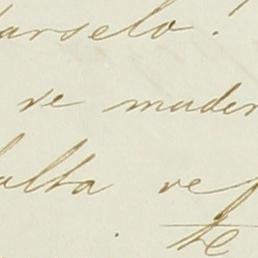 arselo.
ve muden
falta ve
te